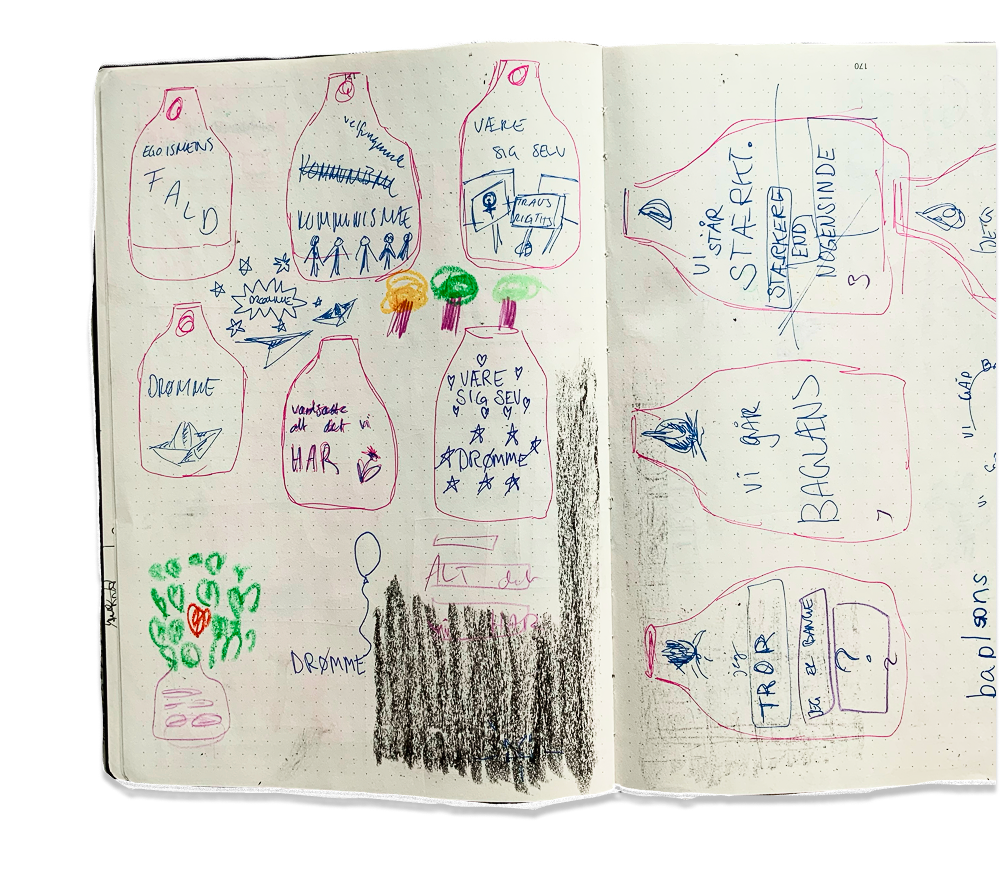 EGOISMENS
FALD
velfungerende
KOMMUNISME
KOMMUNISME
VÆRE
SIG SELV
DRØMME
DRØMME
værdsætte
alt det vi
HAR
VÆRE
SIG SELV
DRØMME
ALT det
HAR
DRØMME
170
VI STÅR
STÆRKT.
STÆRKERE
END
NOGENSINDE
Vi GÅR
BAGLÆNS
7
jeg
TROR
JEG ER BANGE
?
2